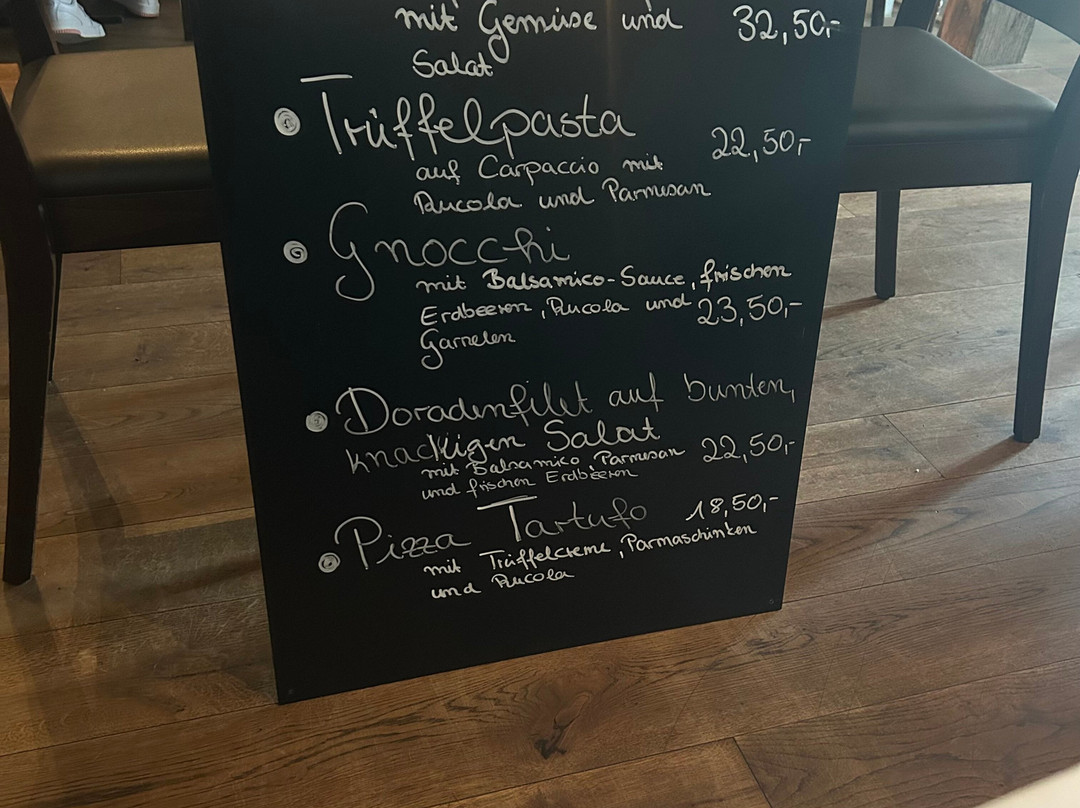 mit Gemüse und 32,50,-
Salat
Trüffelpasta
auf Carpaccio mit 22,50,-
Rucola und Parmesan
Gnocchi
mit Balsamico-Sauce, frischen
Erdbeeren, Rucola und 23,50,-
Garnelen
Doradenfilet auf bunten,
knackigen Salat
mit Balsamico Parmesan 22,50,-
und frischen Erdbeeren
Pizza Tartufo 18,50,-
mit Trüffelcreme, Parmaschinken
und Rucola